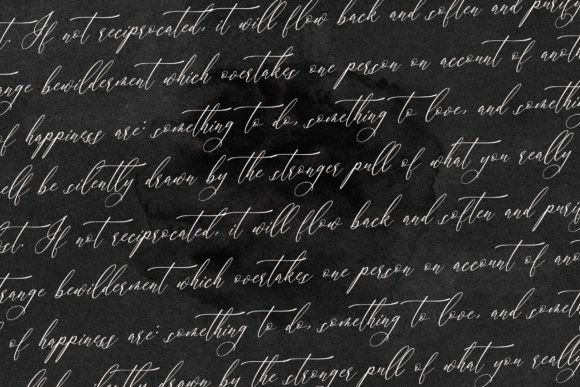 st. If not reciprocated, it will flow back and soften and purify
range bewilderment which overtakes one person on account of anot
of happiness are: something to do, something to love, and someth
elf be silently drawn by the stronger pull of what you really
ost. If not reciprocated, it will flow back and soften and purif
trange bewilderment which overtakes one person on account of ano
l of happiness are: something to do, something to love, and some
self be silently drawn by the stronger pull of what you really